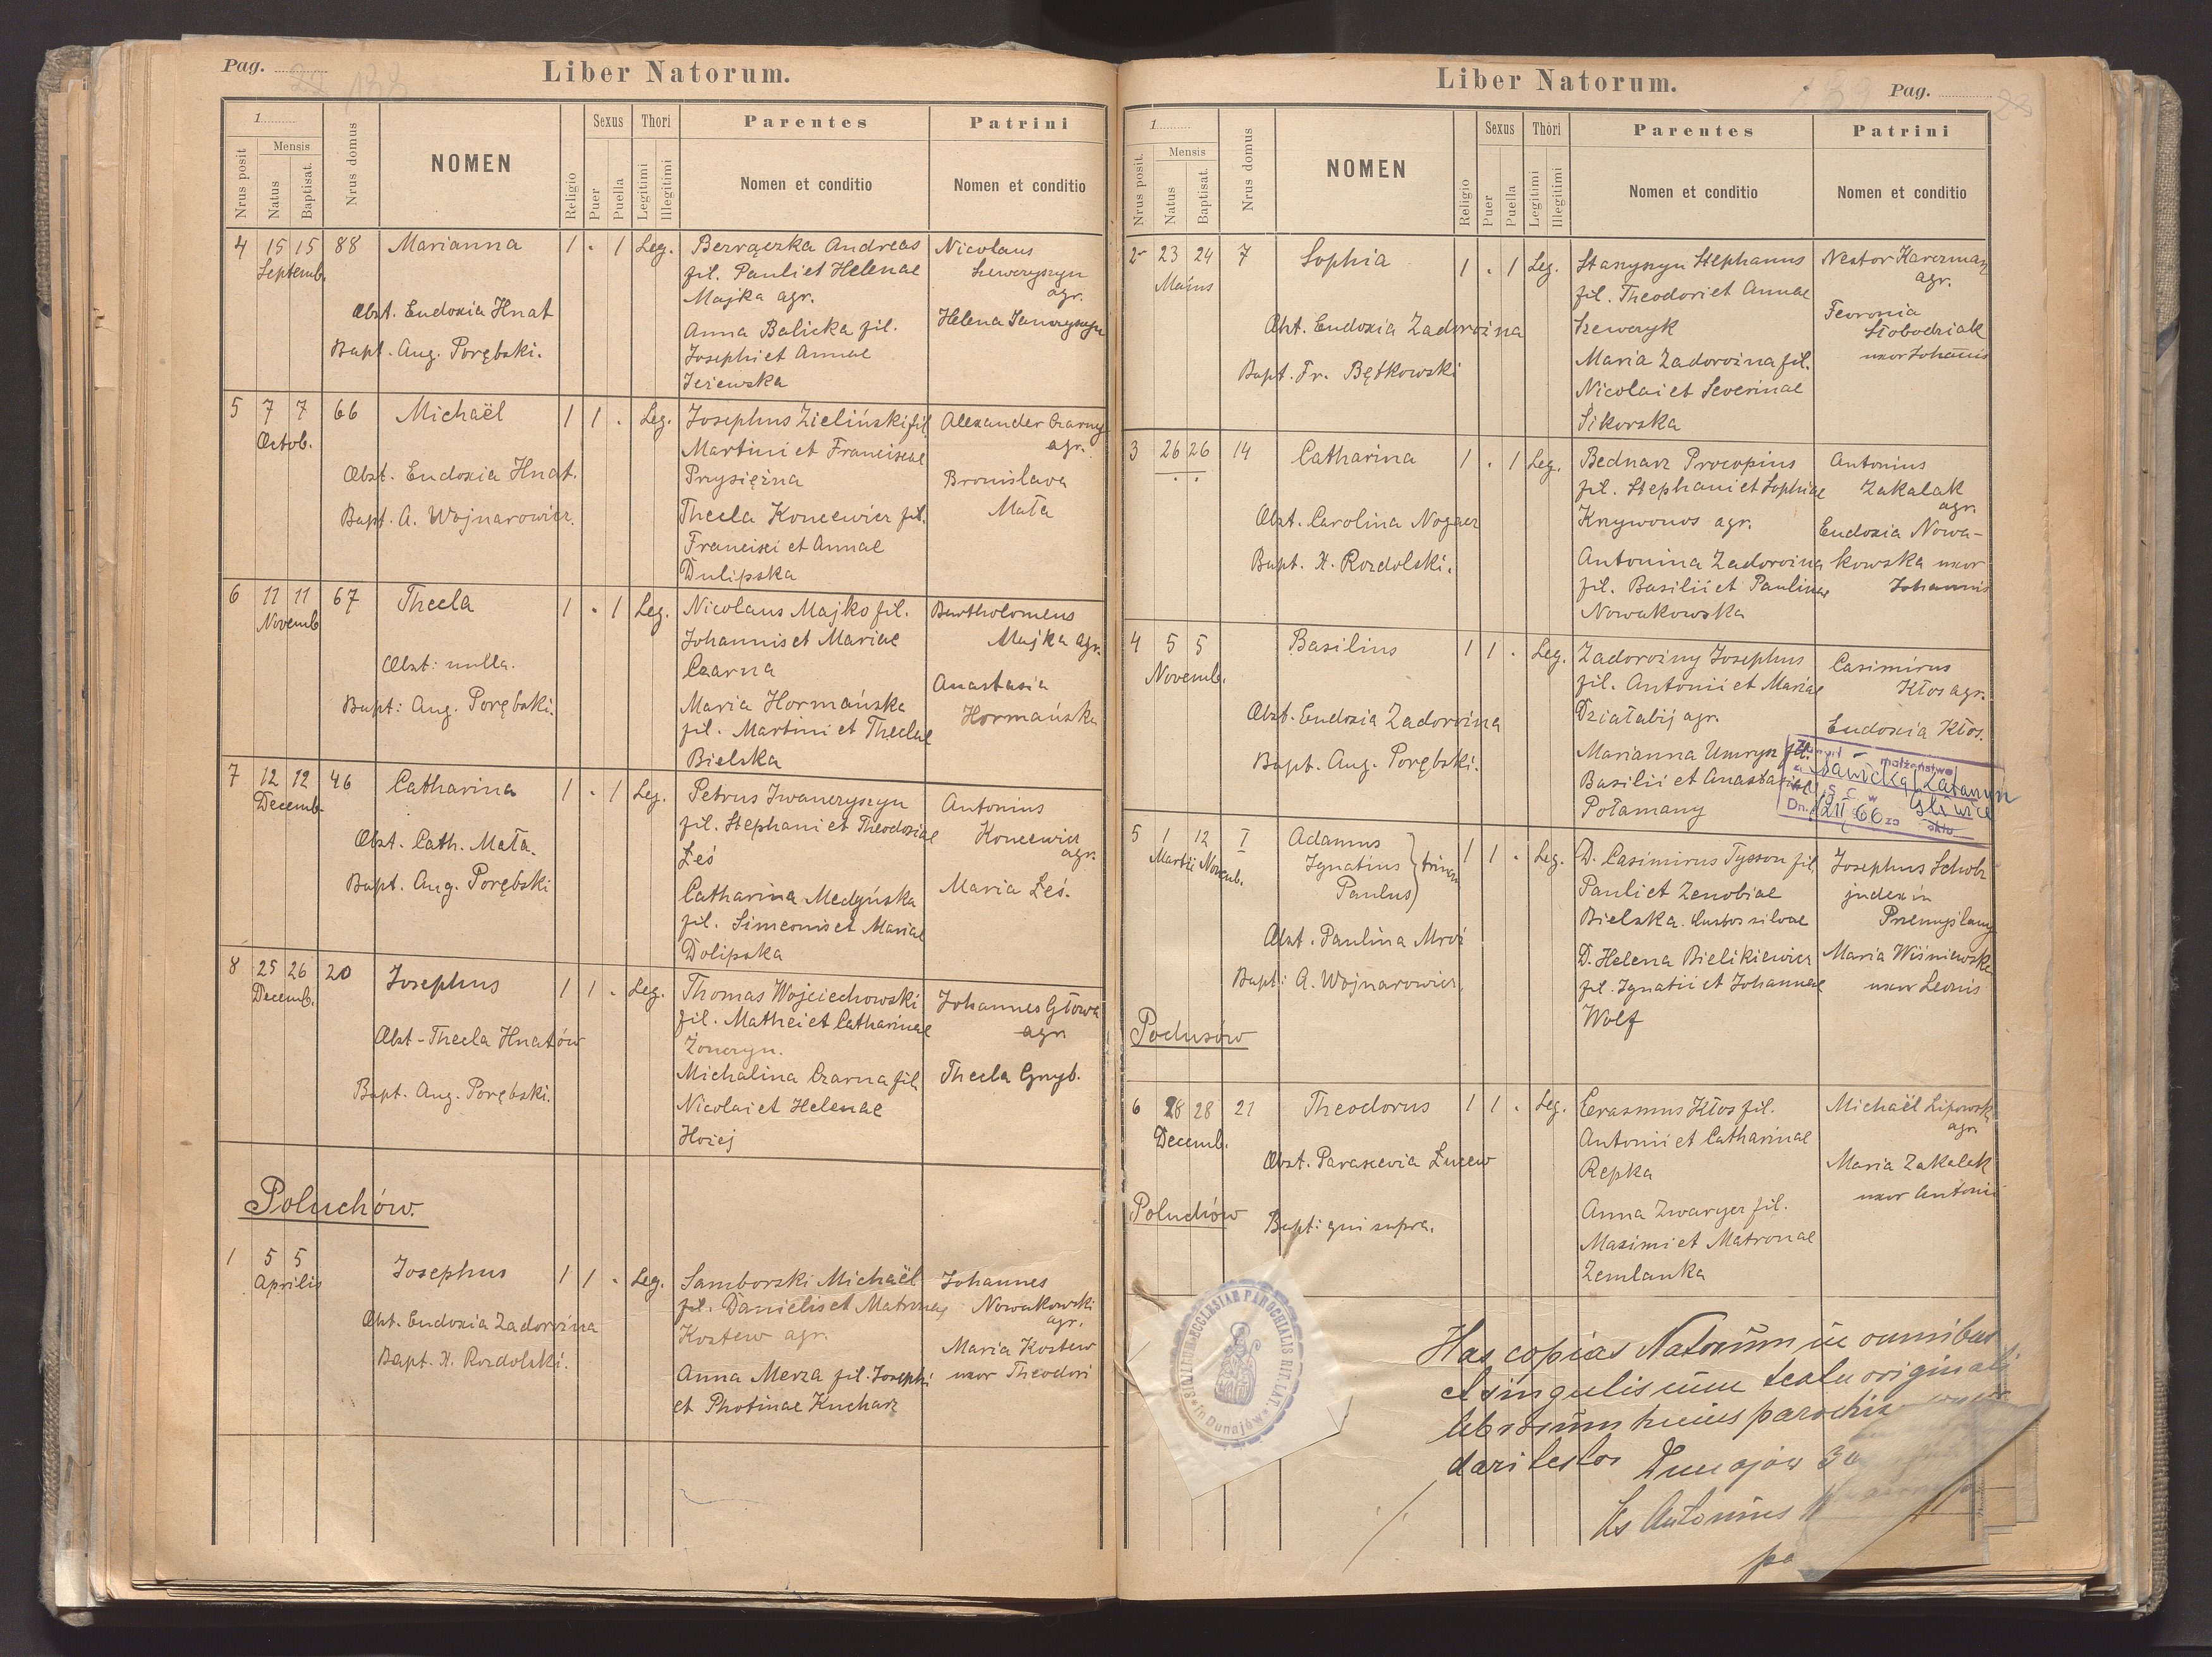 Pag. 138
Liber Natorum.
1
Mensis
Nrus posit
Natus
Baptisat.
Nrus domus
NOMEN
Religio
Sexus
Puer
Puella
Thori
Legitimi
Illegitimi
Parentes
Nomen et conditio
Patrini
Nomen et conditio
4 15 15 88 Marianna 1 . 1 Leg. Berrączka Andreas Nicolaus
Septemb. fil. Pauli et Helenae Szewczyszyn
Majka agr. agr.
Obst. Eudoxia Hnat Anna Balicka fil. Helena Iwanczyszyn
Bapt. Aug. Porębski. Josephi et Annae
Jeżewska
5 7 7 66 Michaël 1 1 . Leg. Josephus Zieliński fil. Alexander Czarny
Octob. Martini et Franciscae agr.
Obst. Eudoxia Hnat. Przysiężna Bronislava
Bapt. A. Wojnarowicz. Thecla Koncewicz fil. Mała
Francisci et Annae
Dulipska
6 11 11 67 Thecla 1 . 1 Leg. Nicolaus Majko fil. Bartholomeus
Novemb Johannis et Mariae Majka agr.
Obst: nulla. Czarna Anastasia
Bapt: Aug. Porębski. Maria Hormańska Hormańska
fil. Martini et Theclae
Bielska
7 12 12 46 Catharina 1 . 1 Leg. Petrus Iwanczyszyn Antonius
Decemb. fil. Stephani et Theodosiae Koncewicz
Obst. Cath. Mała. Łeś agr.
Bapt. Aug. Porębski Catharina Medyńska Maria Łeś.
fil. Simeonis et Mariae
Dolipska
8 25 26 20 Josephus 1 1 . Leg. Thomas Wojciechowski Johannes Głowa
Decemb. fil. Mathei et Catharinae agr.
Obst - Thecla Hnatów Żonczyn.
Bapt. Aug. Porębski. Michalina Czarna fil. Thecla Grzyb.
Nicolai et Helenae
Hożej
Poluchów.
1 5 5 Josephus 1 1 . Leg. Samborski Michaël Johannes
Aprilis fil. Danielis et Matronae Nowakowski
Obst. Eudoxia Zadorożna Kostew agr. agr.
Bapt. H. Rozdolski. Anna Merza fil. Josephi Maria Kostew
et Photinae Kucharz uxor Theodori
Liber Natorum.
Pag.
1
Mensis
Nrus posit.
Natus
Baptisat.
Nrus domus
NOMEN
Religio
Sexus
Puer
Puella
Thori
Legitimi
Illegitimi
Parentes
Nomen et conditio
Patrini
Nomen et conditio
2 23 24 7 Sophia 1 . 1 Leg. Staszyszyn Stephanus Nestor Karczmarz
Maius fil. Theodori et Annae agr.
Obst. Eudoxia Zadorożna Szewczyk Fevronia
Bapt. Fr. Bętkowski Maria Zadorożna fil. Słobodziak
Nicolai et Severinae uxor Johannis
Sikorska
3 26 26 14 Catharina 1 . 1 Leg. Bednarz Procopius Antonius
fil. Stephani et Sophiae Zakalak
Obst. Carolina Nogacz Krzywonos agr. agr.
Bapt. H. Rozdolski. Antonina Zadorożna Eudoxia Nowa-
fil. Basilii et Paulinae kowska uxor
Nowakowska Johannis
4 5 5 Basilius 1 1 . Leg. Zadorożny Josephus Casimirus
Novemb. fil. Antonii et Mariae Kłos agr.
Obst. Eudoxia Zadorożna Działabij agr. Eudoxia Kłos.
Bapt. Aug. Porębski. Marianna Umrysz fil.
Basilii et Anastasiae
Połamany
małżeństwo
Sawicką Katarzyn
U.S.C. w Gliwice
Dn. 12 II 66 za aktu
5 1 12 I Adamus 1 1 . Leg. D. Casimirus Tysson fil. Josephus Scholz
Martii Novemb. Ignatius Pauli et Zenobiae judex in
Paulus Bielska. kustos silvae Przemyslany
Obst. Paulina Mroź D. Helena Bielikiewicz Maria Wiśniewska
Bapt: A. Wojnarowicz. fil. Ignatii et Johannae uxor Leonis
Wolf
Podusów
6 28 28 21 Theodorus 1 1 . Leg. Erasmus Kłos fil. Michaël Lipowski
Decemb. Antonii et Catharinae agr.
Obst. Parascevia Łucew Repka Maria Zakalak
Poluchów Bapt: qui supra. Anna Zwarycz fil. uxor Antonii
Maximi et Matronae
Zemlanka
SIGILLUM ECCLESIAE PAROCHIALIS RIT. LAT. in Dunajów
Has copias Natorum in omnibus
et singulis cum textu originali
librorum huius parochiae
dari testor Dunajów 30
Ks Antonius